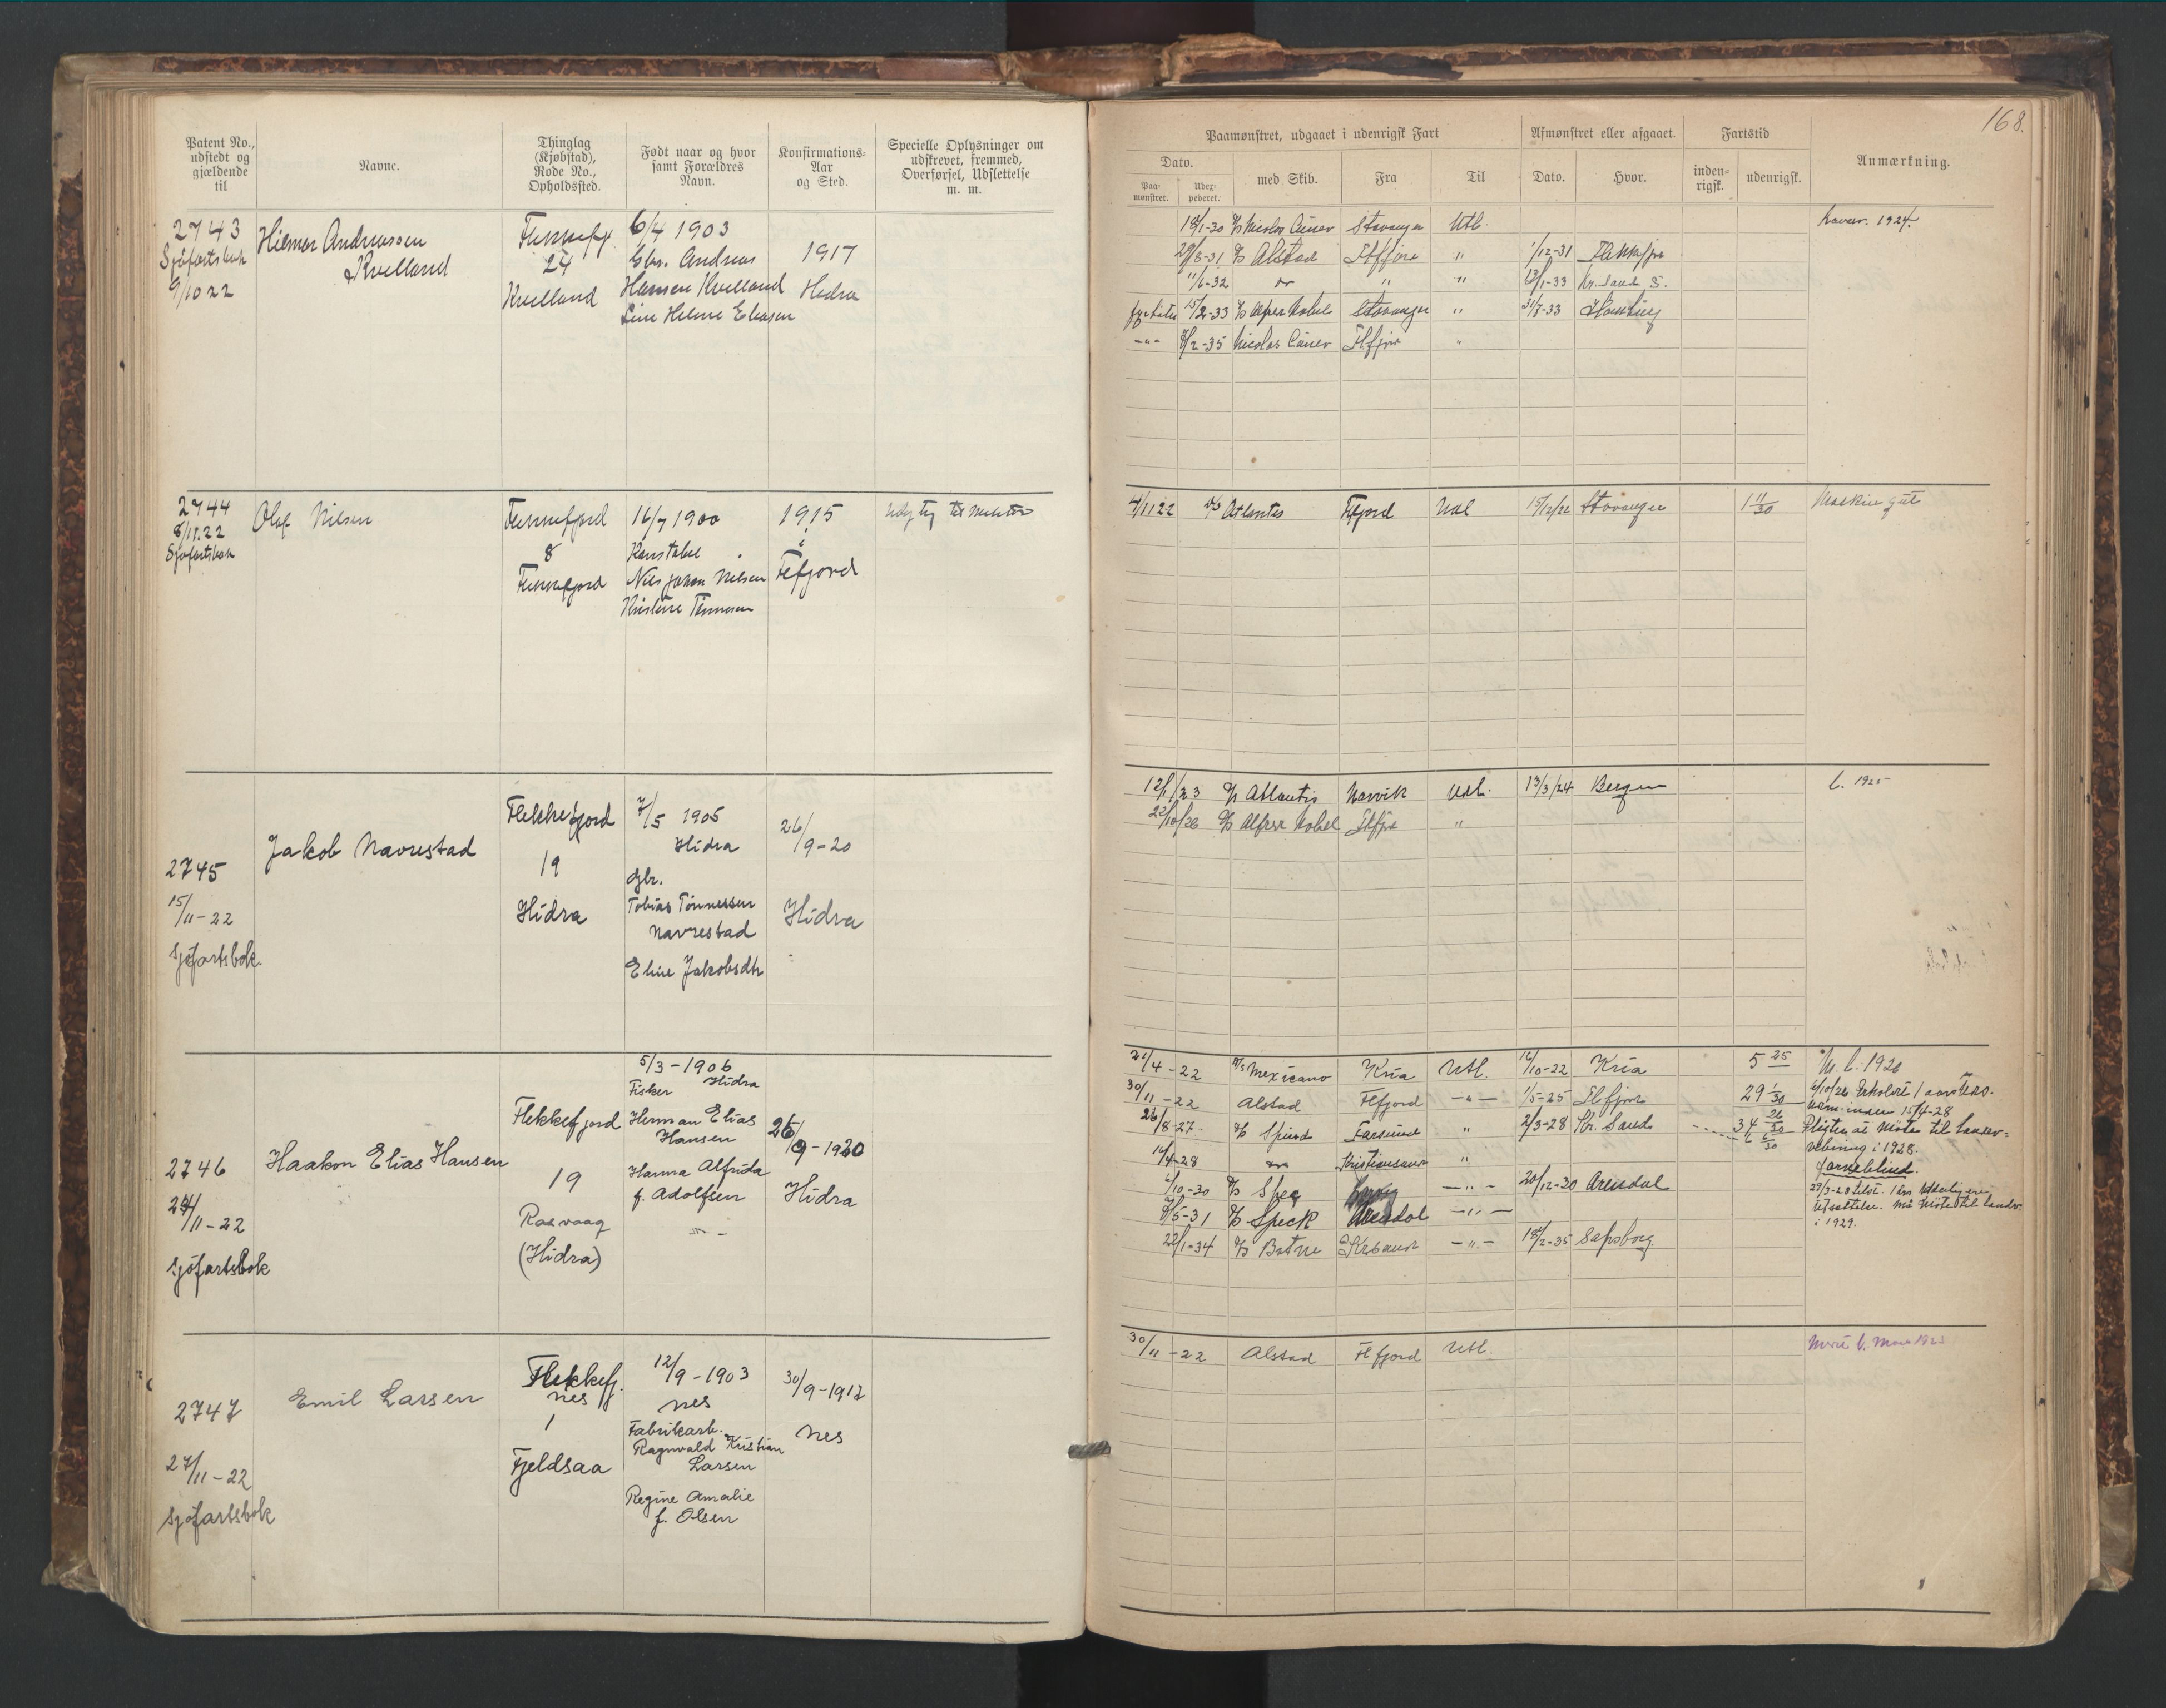 168.
Patent No., udstedt og gjældende til
Navne.
Thinglag (Kjøbstad), Rode No., Opholdssted.
Født naar og hvor samt Forældres Navn.
Konfirmations-Aar og Sted.
Specielle Oplysninger om udskrevet, fremmed, Overførsel, Udslettelse m. m.
Paamønstret, udgaaet i udenrigsk Fart
Afmønstret eller afgaaet.
Fartstid
Anmærkning.
Dato.
Paa-mønstret.
Udex-pederet.
med Skib.
Fra
Til
Dato.
Hvor.
inden-rigsk.
udenrigsk.
2743
Sjøfartsbok
9/10 22
Hilmer Andreassen
Kvelland
Flekkefj.
24
Kvelland
6/4 1903
Gbr. Andreas
Hansen Kvelland
Line Helene Eliasen
1917
Hidra
18/1-30 Nicolas Cuneo Stavanger Utl.
29/8-31 Alstad Flfjord " 1/12-31 Flekkefjord
11/6-32 do " " 13/1-33 Kr.sand S.
fyrbøter 15/2-33 Alfred Nobel Stavanger " 31/8-33 Hamburg
-"- 8/2-35 Nicolas Cuneo Flfjord "
1924.
2744
8/11.22
Sjøfartsbok
Olaf Nilsen
Flekkefjord
8
Flekkefjord
16/7 1900
Konstabel
Nils Johan Nilsen
Kristine Tønnesen
1915
i
Flfjord
4/11 22 D/S Atlantis Flfjord Utl 15/12/22 Stavanger 1 11/30 Maskingut
2745
15/11-22
Sjøfartsbok.
Jakob Navrestad
Flekkefjord
19
Hidra
7/5 1905
Hidra
Gbr.
Tobias Tønnessen
Navrestad
Eline Jakobsdtr
26/9-20
Hidra
12/1/23 Atlantis Narvik Utl. 13/3/24 Bergen
22/10/26 Alfred Nobel Flfjord "
b. 1925
2746
24/11-22
Sjøfartsbok
Haakon Elias Hansen
Flekkefjord
19
Rasvaag
(Hidra)
5/3-1906
Hidra
Fisker
Herman Elias
Hansen
Hanna Alfrida
f. Adolfsen
26/9-1920
Hidra
21/4-22 Mexicano Kria Utl. 16/10-22 Kria 5 25
30/11-22 Alstad Flfjord -"- 1/5-25 Flfjord 29 1/30
26/8-27 Spind Farsund " 2/3-28 Kr. Sand 34 26/30
16/4-28 do Kristiansand "
6 6/30
6/10-30 Speg -"- 20/12-30 Arendal
8/5-31 Speck Arendal -"-
22/1-34 Botne Krsand -"- 18/2-35 Sapsborg.
M. b. 1926
Pligten at møte til landev=
vebning i 1928.
farveblind.
i 1929.
2747
27/11-22
Sjøfartsbok
Emil Larsen
Flekkefj.
nes
1
Fjeldsaa
12/9-1903
nes
Fabrikarb.
Ragnvald Kristian
Larsen
Regine Amalie
f. Olsen
30/9-1917
nes
30/11-22 Alstad Flfjord Utl.